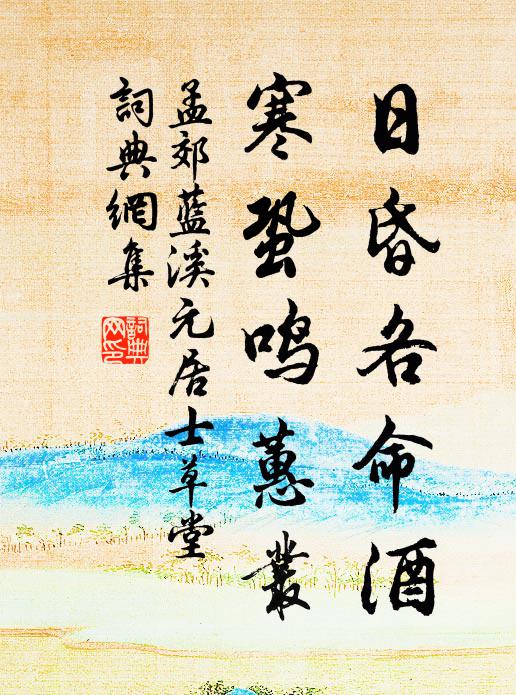 日昏各命酒
寒蛩鸣蕙叢
孟郊藍溪元居士草堂
詞典網集